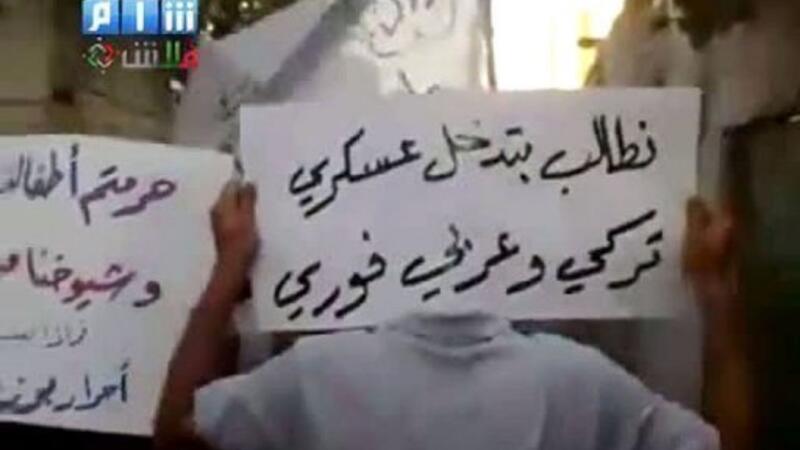 شام
فلاش
نطالب بتدخل عسكري
تركي وعربي فوري
هرمتم أطفالنا
وشيوخنا
أحرار